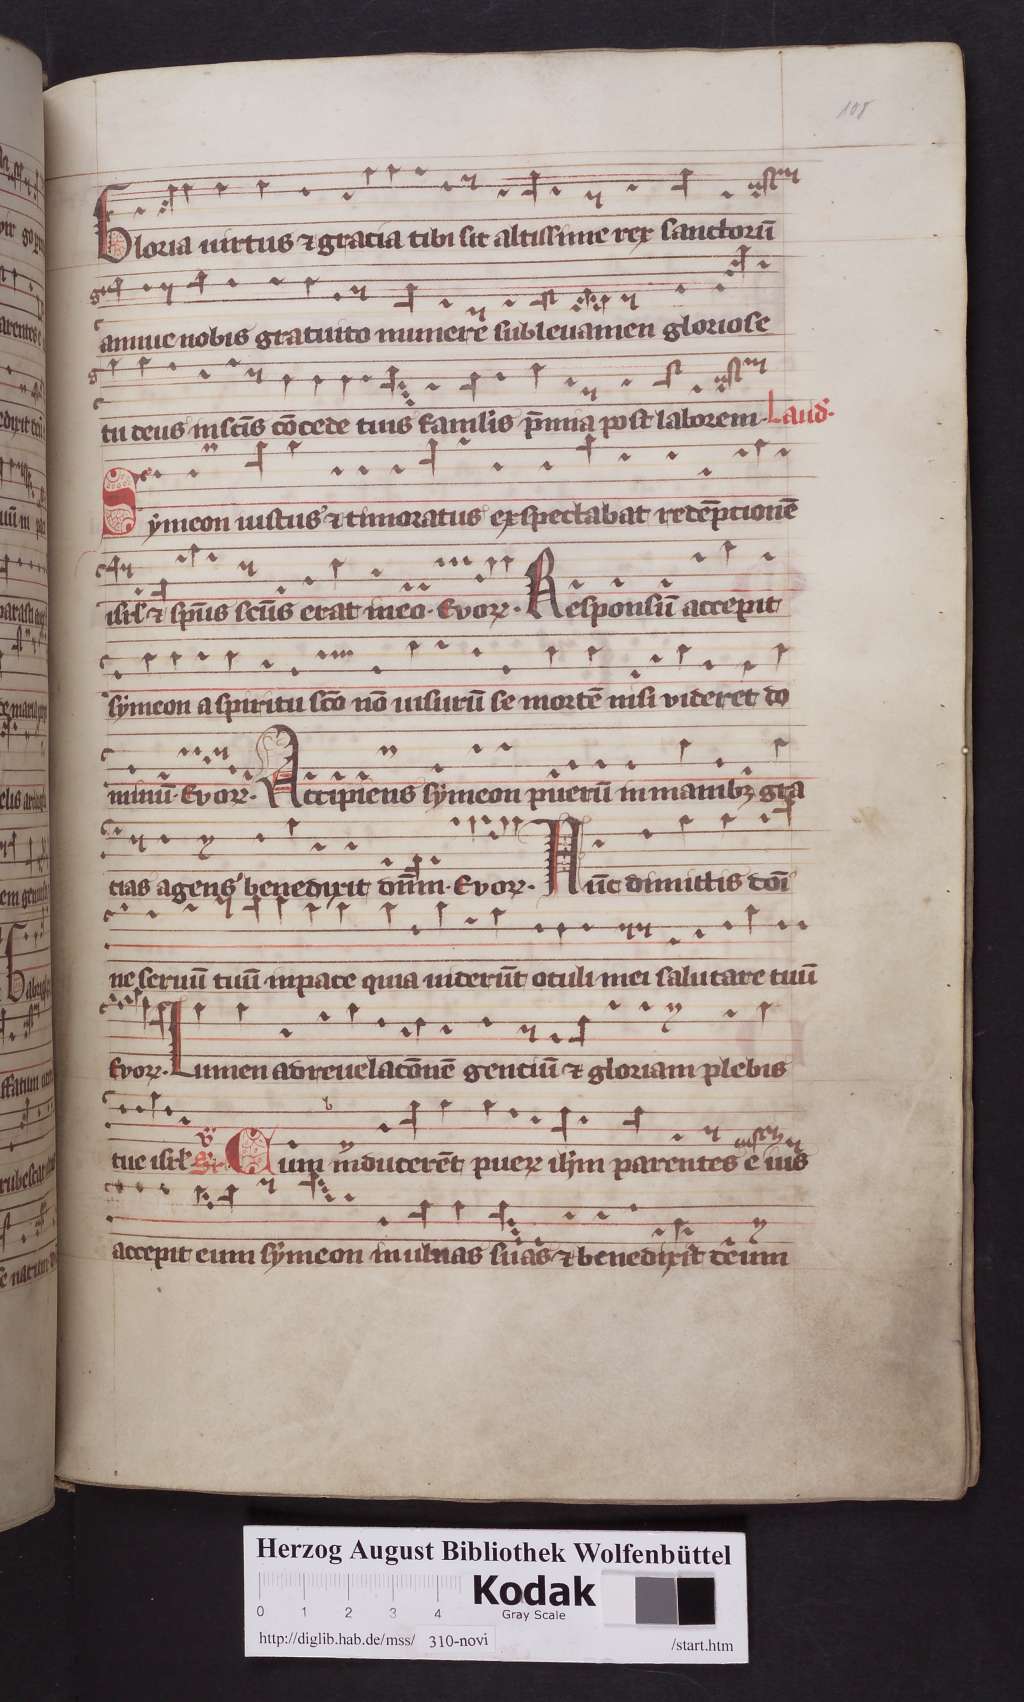 108
Gloria uirtus ⁊ gracia tibi sit altissime rex sanctorū
annue nobis gratuito munere subleuamen gloriose
tu deus in scīs cōcede tuis famul'is p̄mia post laborem. Laud'.
Symeon iustus ⁊ timoratus exspectabat redēpcionē
isrl' ⁊ sp̄us scūs erat in eo. Evoꝝ. Responsū accepit
symeon a spiritu scō nō uisurū se mortē nisi videret do
minū. Evoꝝ. Accipiens symeon puerū in manibꝫ gra
cias agens benedixit dn̄m. Evoꝝ. Nūc dimittis domī
ne seruū tuū in pace quia uiderūt oculi mei salutare tuū
Evoꝝ. Lumen ad reuelacōnē genciū ⁊ gloriam plebis
tue isrl' Cum inducerēt pueꝝ ih̄m parentes eius
accepit eum symeon in ulnas suas ⁊ benedixit deum
Herzog August Bibliothek Wolfenbüttel
Kodak
Gray Scale
0 1 2 3 4
http://diglib.hab.de/mss/ 310-novi /start.htm